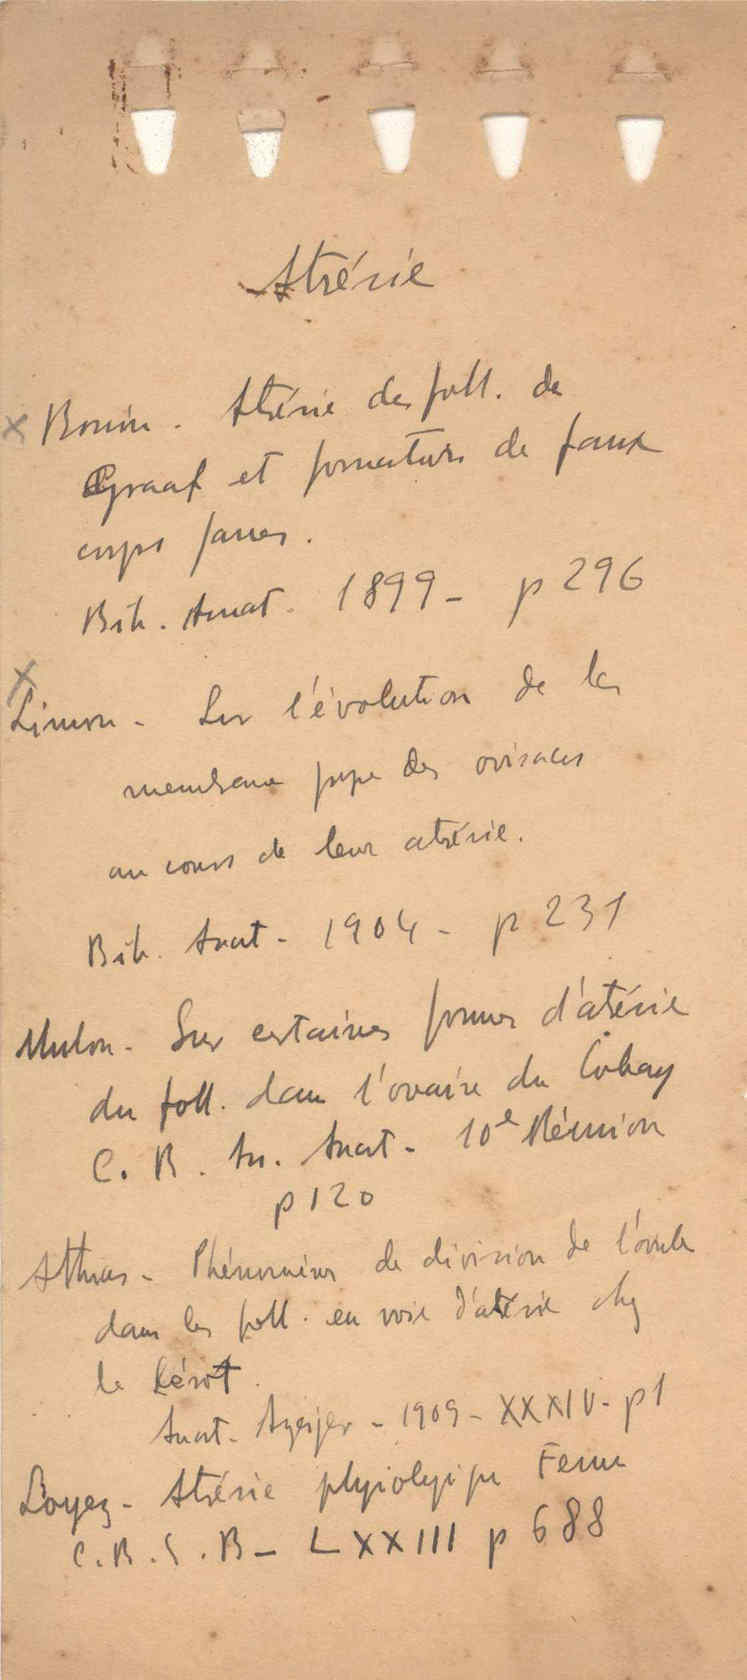 Atrésie
x Bouin. Atrésie des foll. de
Graaf et formations de faux
corps jaunes.
Bib. Anat. 1899 - p 296
x
Limon - Sur l'évolution de la
membrane propre des ovisacs
au cours de leur atrésie.
Bib. Anat - 1904 - p 231
Mulon - Sur certaines formes d'atrésie
du foll. dans l'ovaire du Cobay
C. R. As. Anat - 10e Réunion
p 120
Athias - Phénomènes de division de l'ovule
dans les foll. en voie d'atrésie chez
le Lérot.
Anat. Anzeiger - 1909 - XXXIV - p 1
Loyez - Atrésie physiologique Femme
C. R. S. B - LXXIII p 688